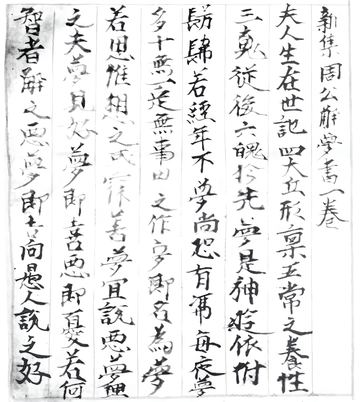 新集周公解夢書一卷
夫人生在世記四大立形稟五常之養性
三魂從後六魄於先夢是神遊依附
髣髴若經年不夢尚恐有馮每夜夢
多十無一定無事日之作夢即名為夢
若思惟想之成寐善夢宜說惡夢
之夫夢見夢即喜惡即憂若何
智者解之惡夢即吉向愚人說之好